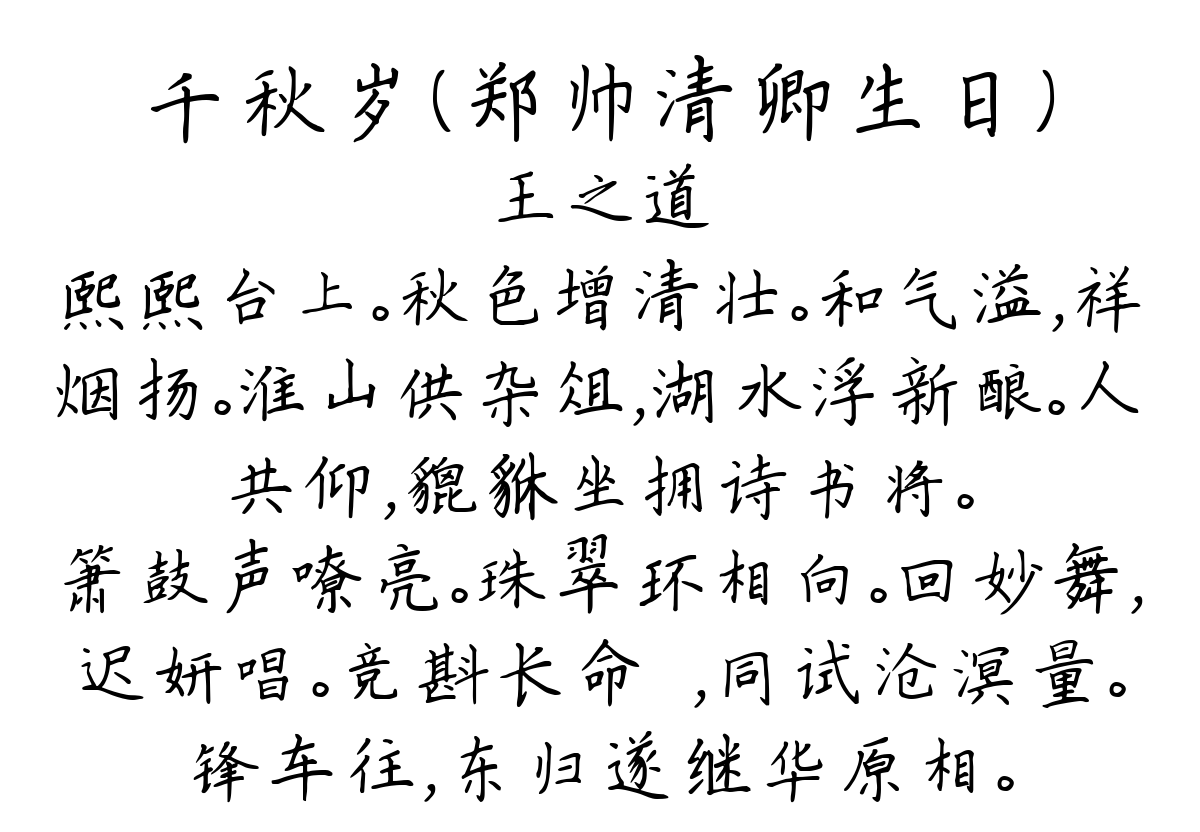 千秋岁(郑帅清卿生日)
王之道
熙熙台上。秋色增清壮。和气溢,祥
烟扬。淮山供杂俎,湖水浮新酿。人
共仰,貔貅坐拥诗书将。
箫鼓声嘹亮。珠翠环相向。回妙舞,
迟妍唱。竞斟长命 ,同试沧溟量。
锋车往,东归遂继华原相。